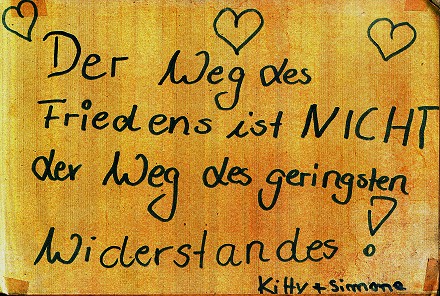 Der Weg des
Friedens ist NICHT
der Weg des geringsten
Widerstandes!
Kitty + Simone